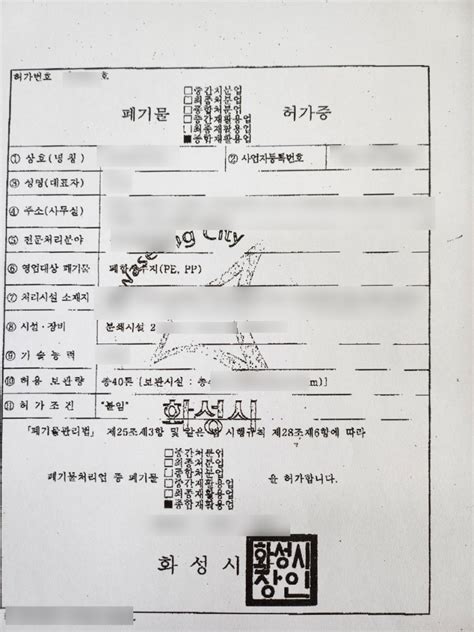 허가번호 호
□중간처분업
□최종처분업
폐기물 □종합처분업 허가증
□중간재활용업
□최종재활용업
■종합재활용업
① 상호(명칭) ② 사업자등록번호
③ 성명(대표자)
④ 주소(사무실)
⑤ 전문처리분야
Hwaseong City
⑥ 영업대상 폐기물 폐합성수지(PE, PP)
⑦ 처리시설 소재지
⑧ 시설·장비 분쇄시설 2
⑨ 기술능력
⑩ 허용보관량 총40톤 [보관시설 : 총 m)]
⑪ 허가조건 "붙임"
화성시
「폐기물관리법」 제25조제3항 및 같은 법 시행규칙 제28조제6항에 따라
□중간처분업
□최종처분업
□종합처분업
폐기물처리업 중 폐기물 □중간재활용업 을 허가합니다.
□최종재활용업
■종합재활용업
화성시
화성시
장인